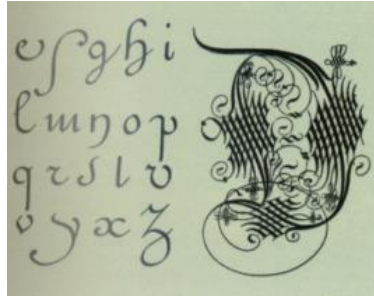 e f g h i
l m n o p
q r s t v
v y x z